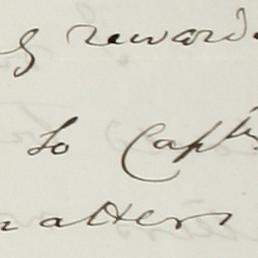 reward
to Capt
matters